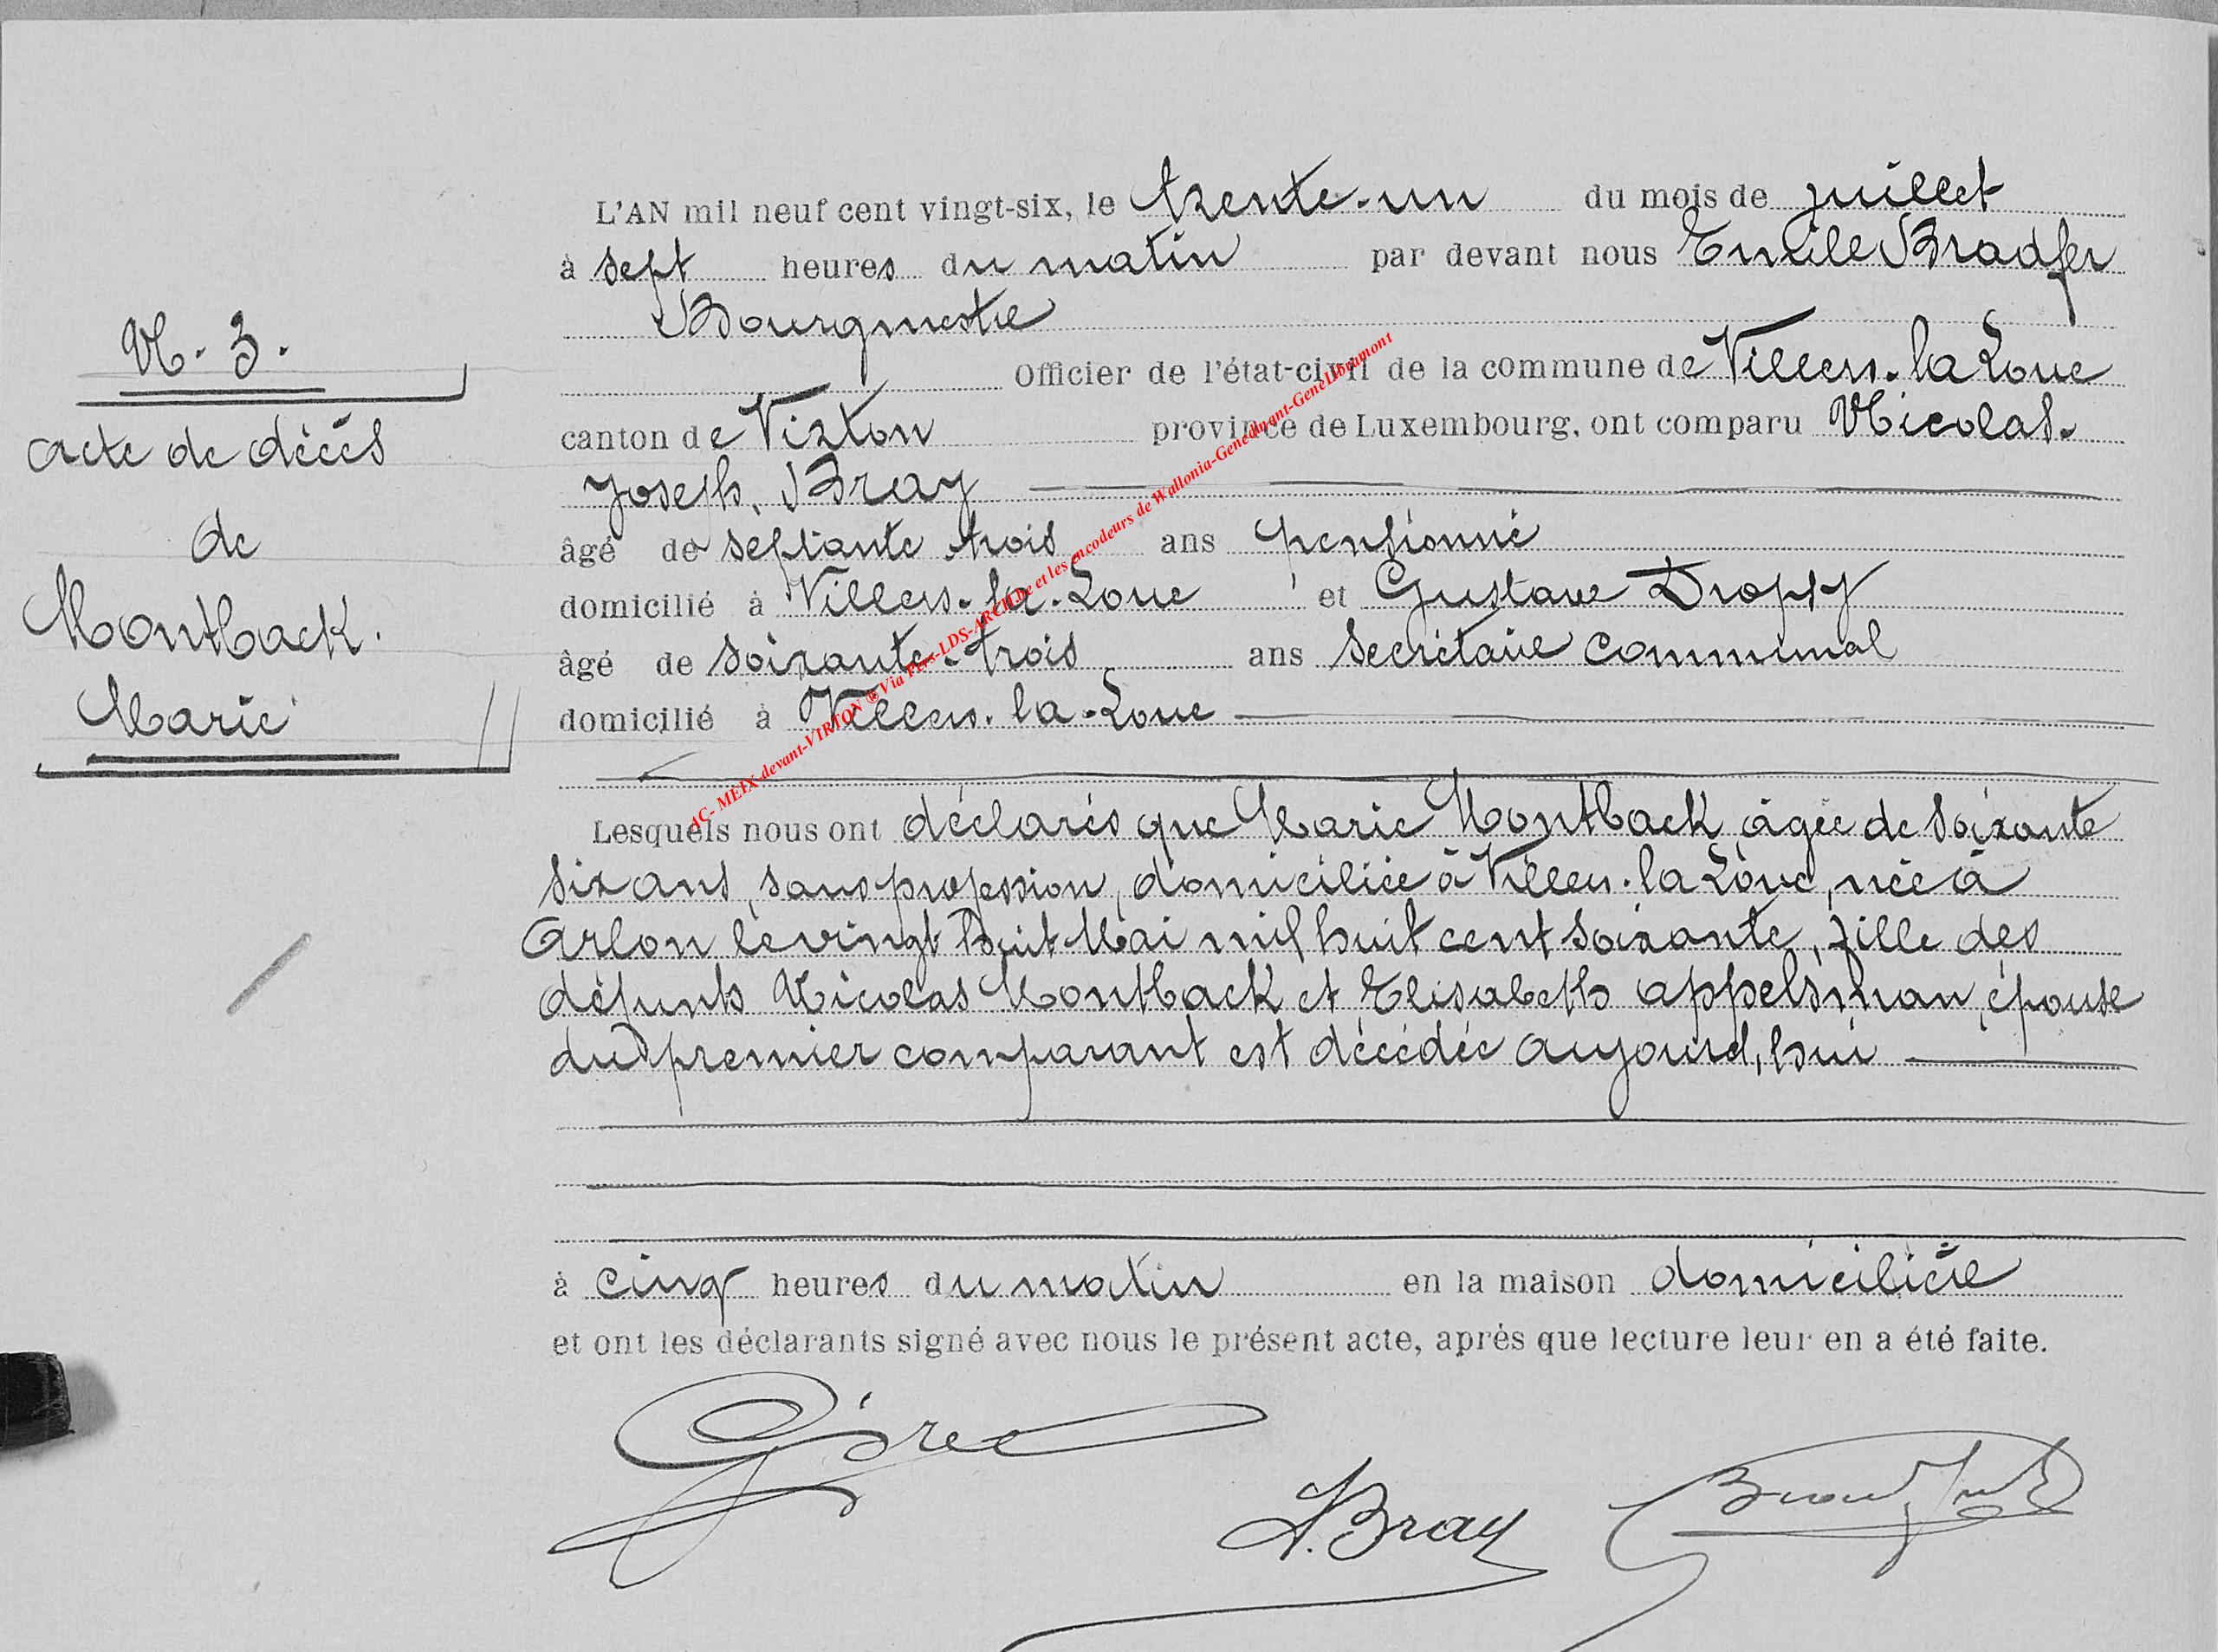 N. 3.
acte de décès
de
Montback.
Marie
L'AN mil neuf cent vingt-six, le trente-un du mois de juillet
à sept heures du matin par devant nous Emile Bradfer
Bourgmestre
Officier de l'état-civil de la commune de Villers-la-Loue
canton de Virton province de Luxembourg, ont comparu Nicolas-
Joseph, Bray
âgé de septante trois ans pensionné
domicilié à Villers-la-Loue et Gustave Dropsy
âgé de soixante-trois ans secrétaire communal
domicilié à Villers-la-Loue
Lesquels nous ont déclarés que Marie Montback, âgée de soixante
six ans, sans profession, domiciliée à Villers-la Loue, née à
Arlon le vingt huit Mai mil huit cent soixante, fille des
défunts Nicolas Montback et Elisabeth appelsman, épouse
du premier comparant est décédée aujourd'hui
à cinq heures du matin en la maison
et ont les déclarants signé avec nous le présent acte, après que lecture leur en a été faite.
N. Bray
AC- MEIX-devant-VIRTON @ Via Pers-LDS-ARCH.be et les encodeurs de Wallonia-Genedinant-GeneLibramont